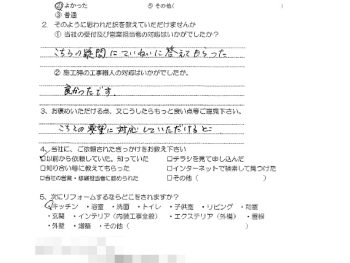 ② よかった ⑤ その他(
③ 普通
2. そのように思われた訳を教えていただけませんか
① 当社の受付及び営業担当者の対応はいかがでしたか？
こちらの疑問にていねいに答えてもらった
② 施工等の工事職人の対応はいかがでしたか。
良かったです。
3. お褒めいただける点、又こうしたらもっと良い点等ご意見下さい。
こちらの要望に対応していただけると
4. 当社に、ご依頼されたきっかけをお教え下さい
以前から依頼していた。知っていた □チラシを見て申し込んだ
□知り合い等に教えてもらった □インターネットで検索して見つけた
□当社の営業・修繕担当者に勧められた □その他（ ）
5. 次にリフォームするならどこをされますか？
キッチン ・浴室 ・洗面 ・トイレ ・子供室 ・リビング ・和室
・玄関 ・インテリア（内装工事全般） ・エクステリア（外構） ・屋根
・外壁 ・増築 ・その他（ ）